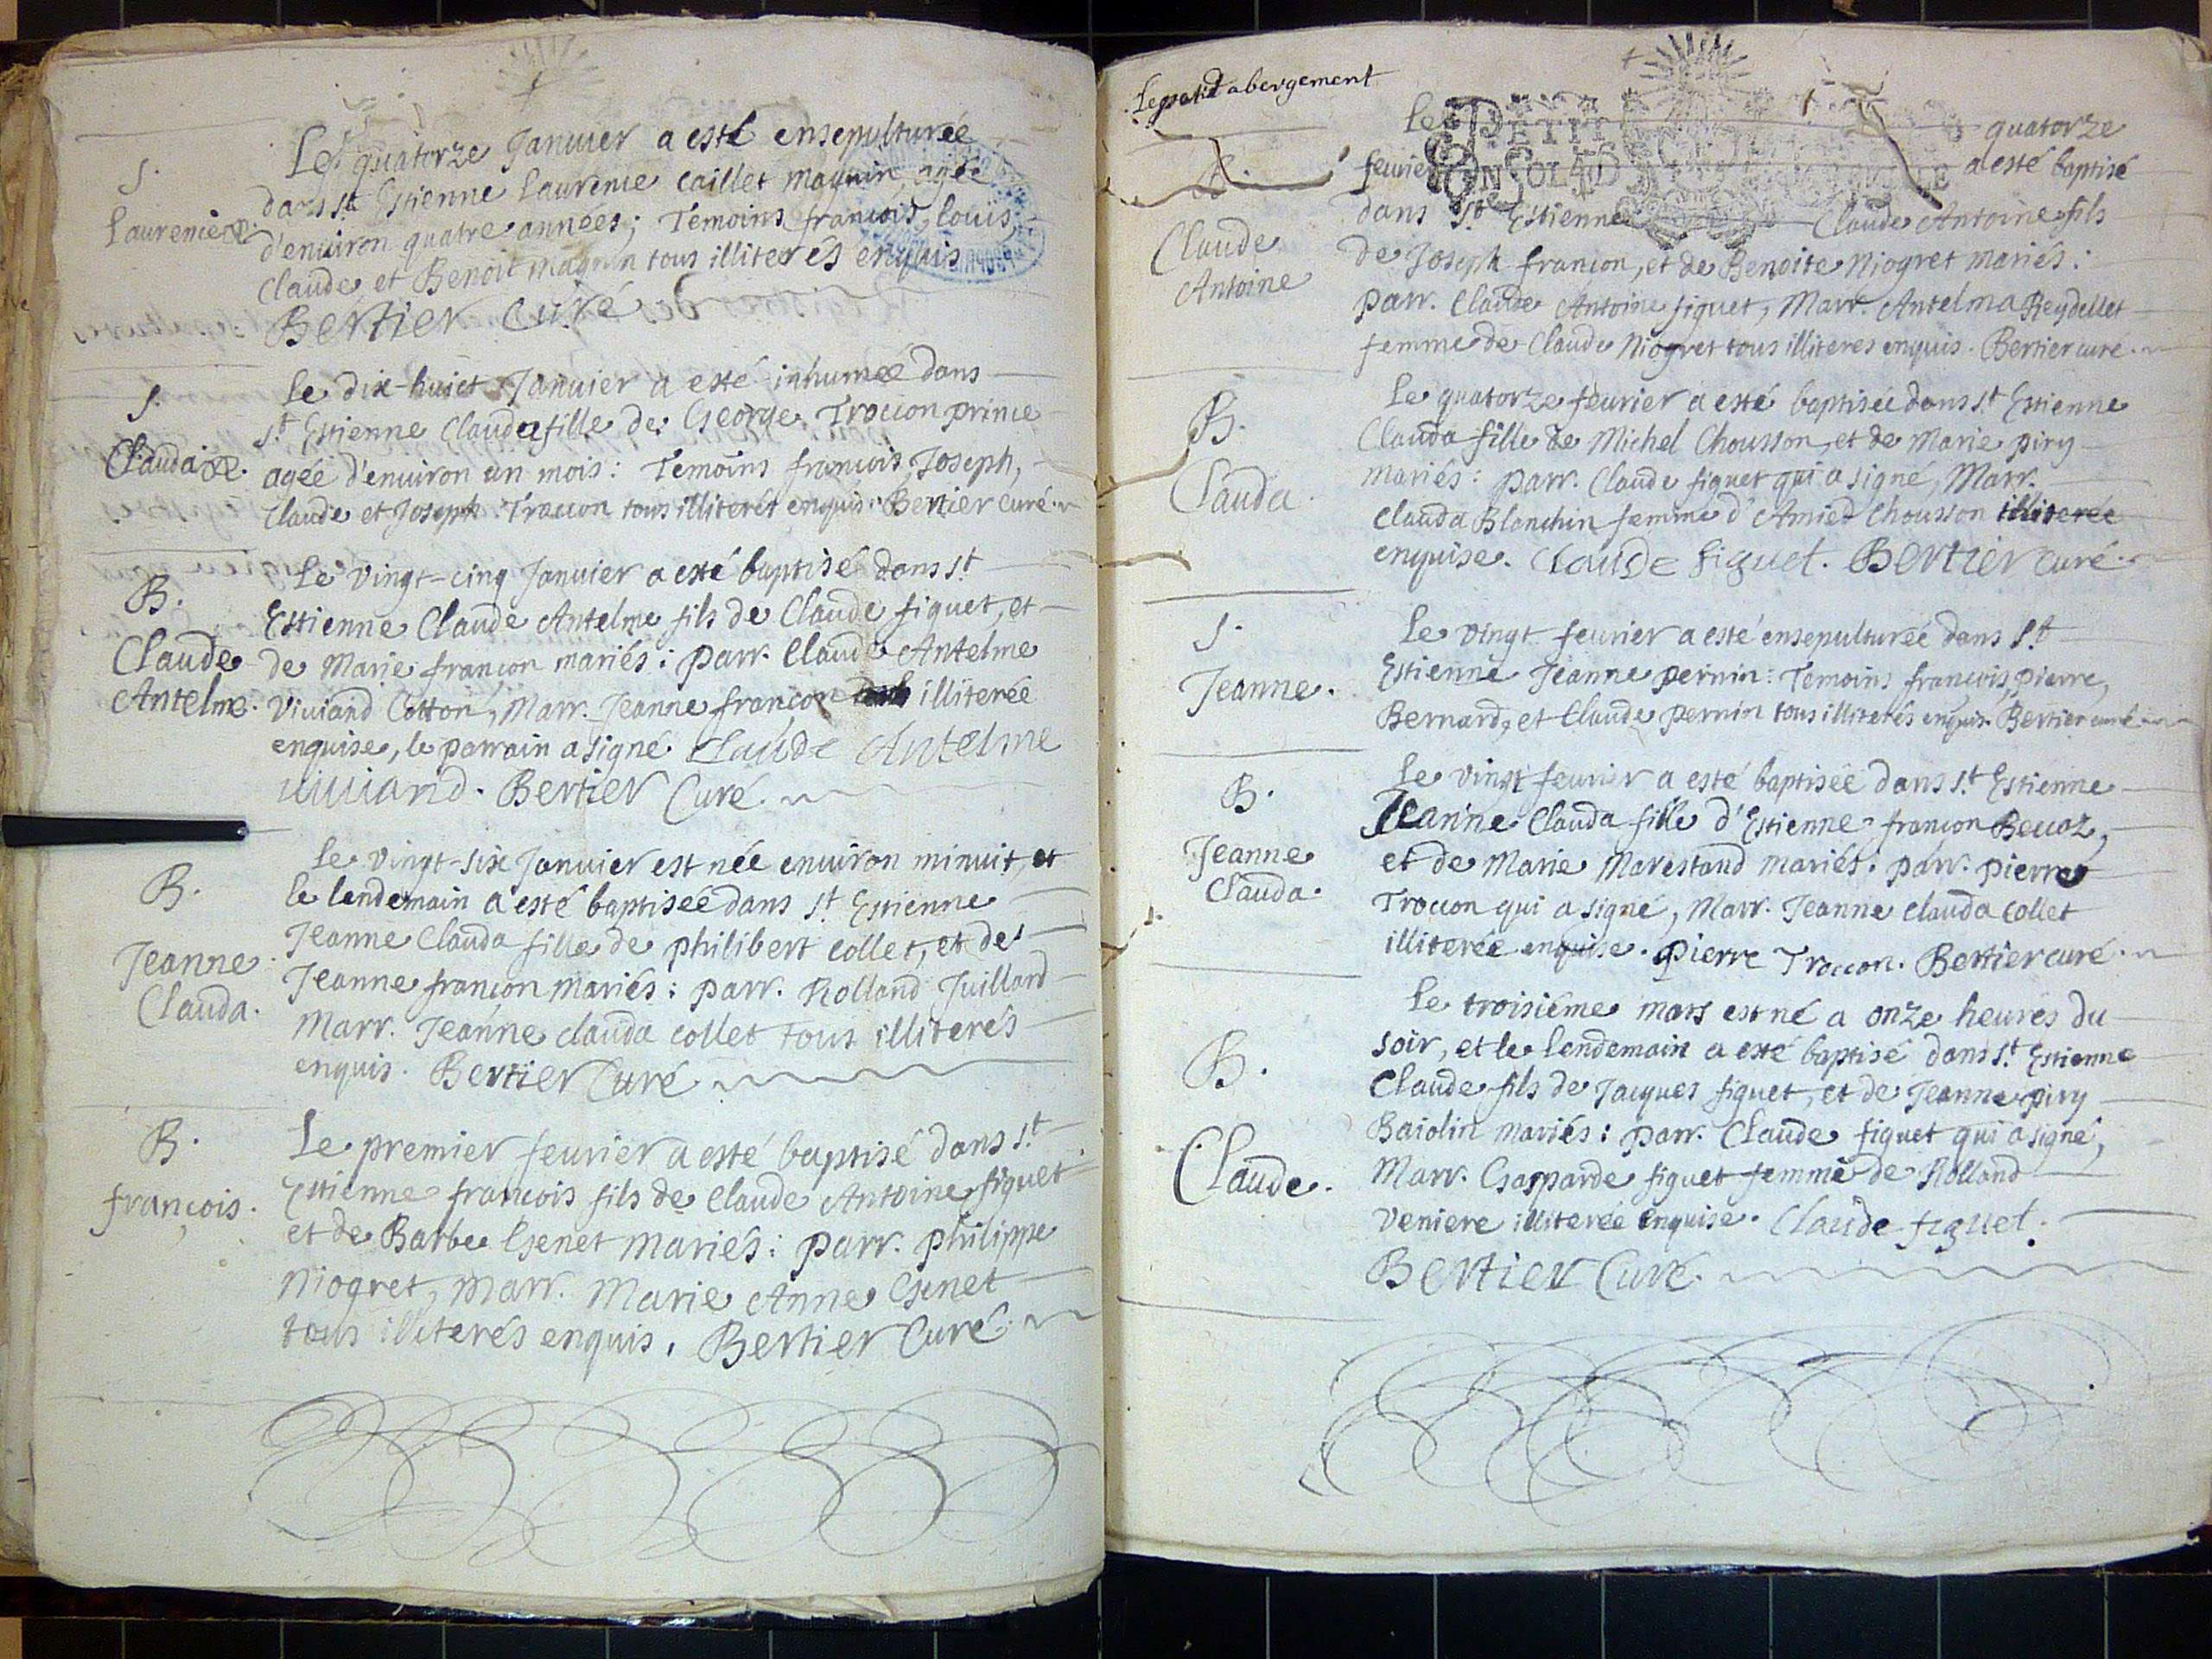 S.
Laurence
Le quatorze Janvier a esté ensepulturée
dans s.t Estienne Laurence Caillet maguin, agée
d'environ quatre années; Temoins francois, louis,
Claude et Benoit maguin tous illiterés enquis
Bertier Curé
S.
Clauda
Le dix-huict Janvier a esté inhumée dans
s.t Estienne Clauda fille de George Troccon prince
agée d'environ un mois: Temoins francois, Joseph,
Claude et Joseph Troccon tous illiterés enquis. Bertier curé.
B.
Claude
Antelme.
Le vingt-cinq Janvier a esté baptisé dans s.t
Estienne Claude Antelme fils de Claude figuet, et
de Marie françon mariés: parr. Claude Antelme
Viviand Cotton, Marr. Jeanne françon illiterée
enquise, le parrain a signé. Claude Antelme
viviand. Bertier Curé.
B.
Jeanne
Clauda.
Le vingt-six Janvier est née environ minuit, et
le lendemain a esté baptisée dans s.t Estienne
Jeanne Clauda fille de philibert collet, et de
Jeanne françon mariés: parr. Rolland Juillard
Marr. Jeanne clauda collet tous illiterés
enquis. Bertier Curé
B.
françois.
Le premier fevrier a esté baptisé dans s.t
Estienne francois fils de Claude Antoine figuet
et de Barbe Genet mariés: parr. philippe
Niogret, marr. Marie Anne Genet
tous illiterés enquis. Bertier Curé.
Le petit abergement
B.
Claude
Antoine
Le quatorze
fevrier a esté baptisé
dans s.t Estienne Claude Antoine fils
de Joseph françon, et de Benoite Niogret mariés:
parr. Claude Antoine figuet, Marr. Antelma Reydellet
femme de Claude Niogret tous illiteres enquis. Bertier curé.
B.
Clauda
Le quatorze fevrier a esté baptisée dans s.t Estienne
Clauda fille de Michel Chousson, et de Marie piry
mariés: parr. Claude figuet qui a signé, Marr.
Clauda Blanchin femme d'Amied Chousson illiterée
enquise. Claude figuet. Bertier curé.
S.
Jeanne.
Le vingt fevrier a esté ensepulturée dans s.t
Estienne Jeanne pernin: Temoins francois, pierre,
Bernard, et Claude pernin tous illiterés enquis. Bertier curé
B.
Jeanne
Clauda.
Le vingt fevrier a esté baptisée dans s.t Estienne
Jeanne Clauda fille d'Estienne françon Beuoz,
et de Marie Marestand mariés. parr. pierre
Troccon qui a signé, Marr. Jeanne clauda collet
illiterée enquise. pierre Troccon. Bertier curé.
B.
Claude.
Le troisiéme mars est né a onze heures du
soir, et le lendemain a esté baptisé dans s.t Estienne
Claude fils de Jacques figuet, et de Jeanne piry
Baiolin mariés: parr. Claude figuet qui a signé,
Marr. Gasparde figuet femme de Rolland
Veniere illiterée enquise. Claude figuet.
Bertier Curé.